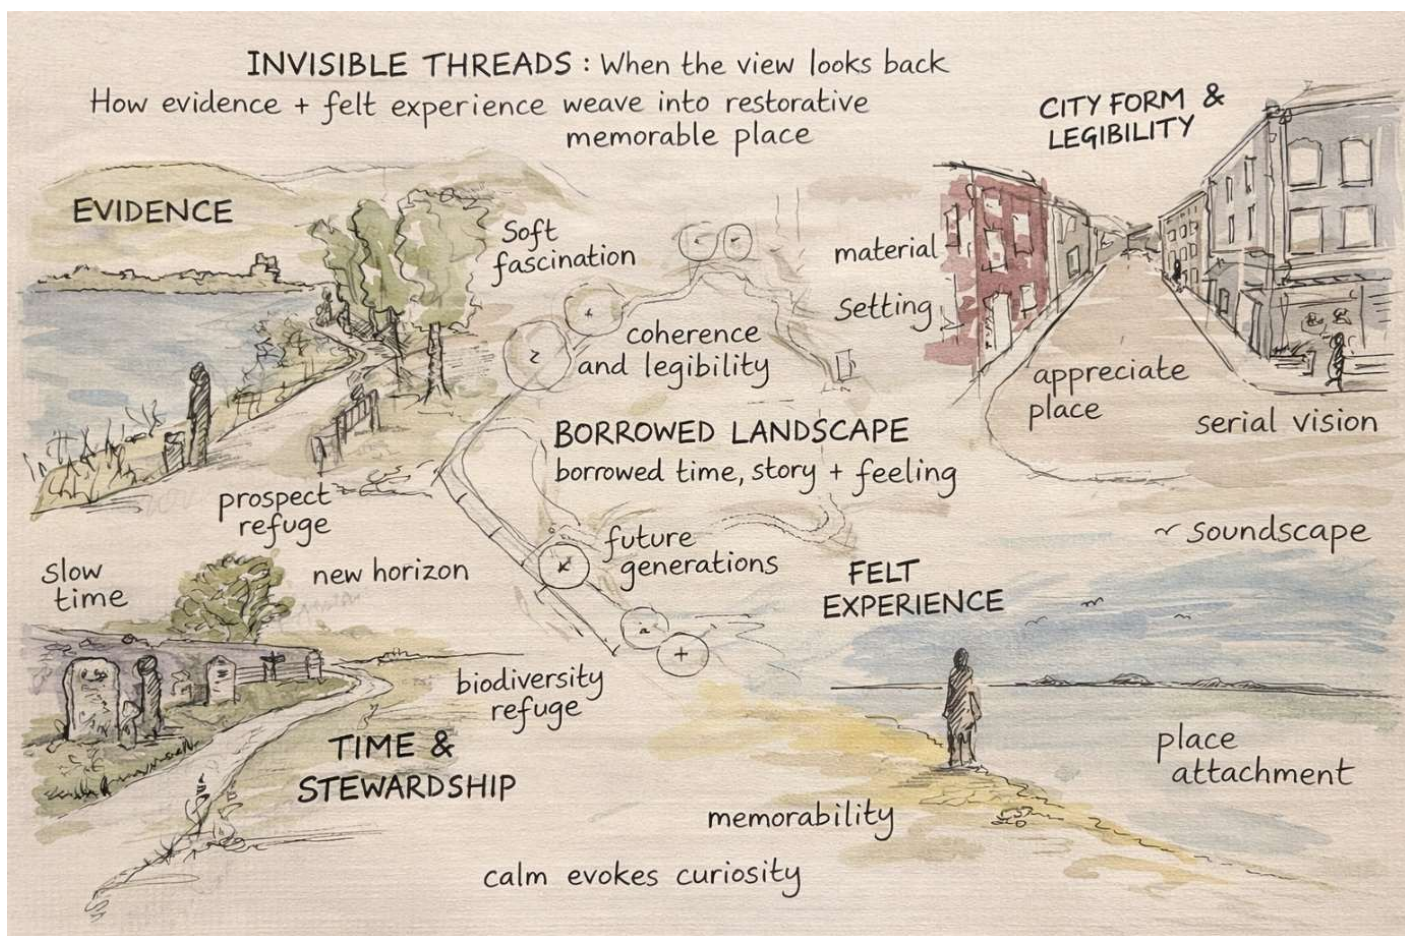 INVISIBLE THREADS : When the view looks back
How evidence + felt experience weave into restorative
memorable place
CITY FORM &
LEGIBILITY
EVIDENCE
Soft
fascination
material
Setting
coherence
and legibility
appreciate
place
serial vision
BORROWED LANDSCAPE
borrowed time, story + feeling
prospect
refuge
soundscape
slow
time
new horizon
future
generations
FELT
EXPERIENCE
biodiversity
refuge
TIME &
STEWARDSHIP
place
attachment
memorability
calm evokes curiosity